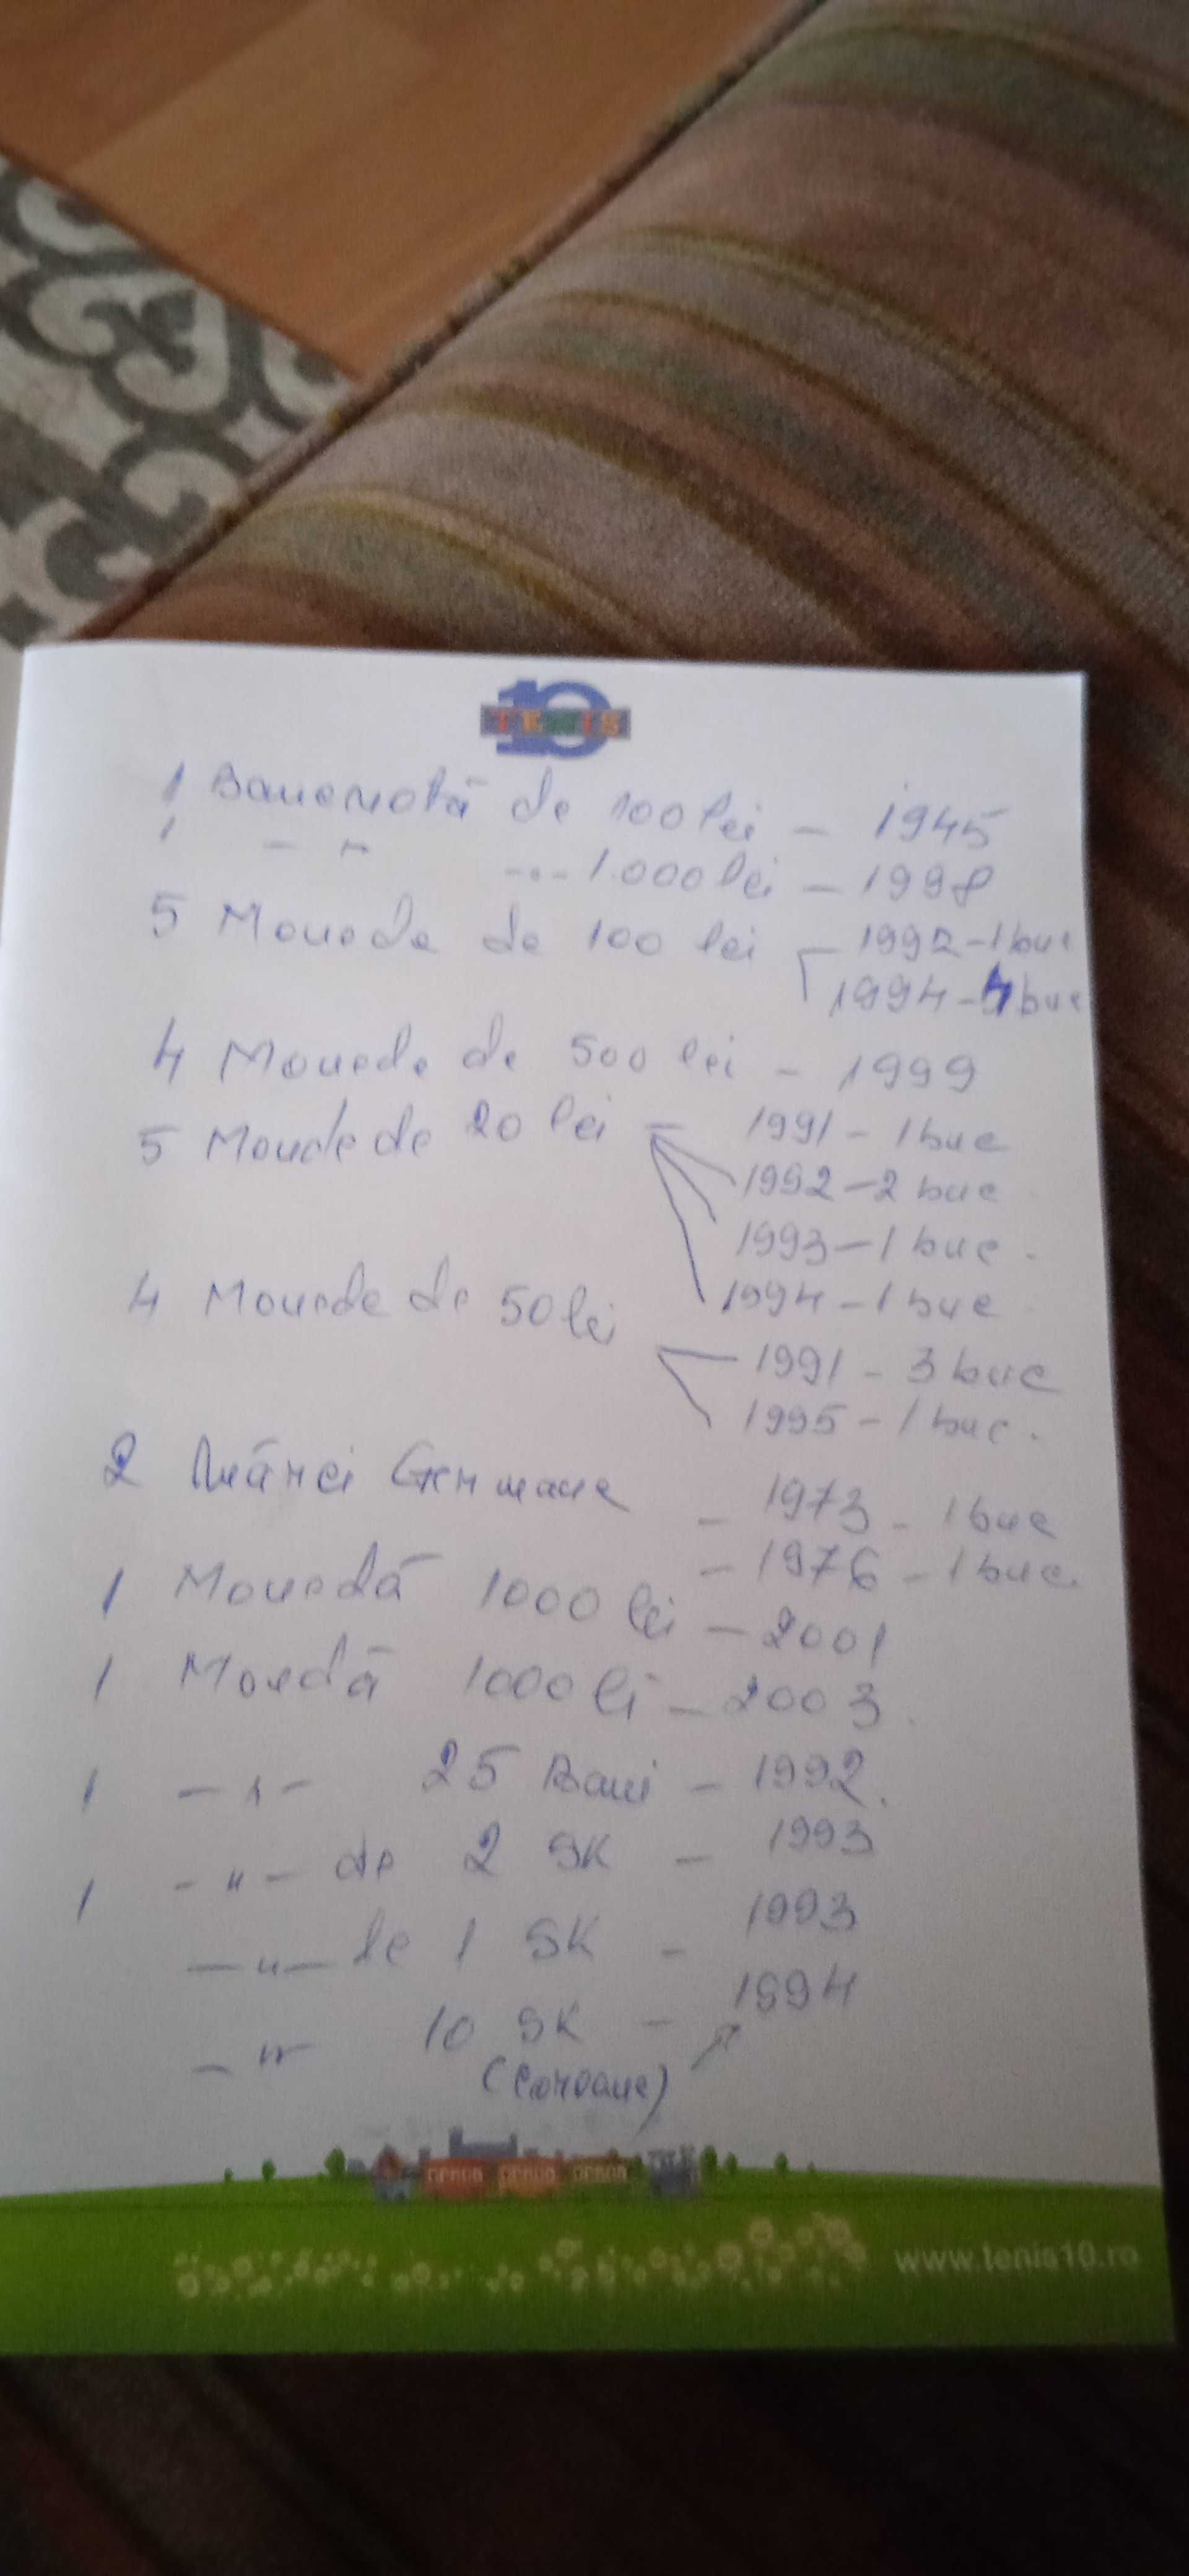 10
TENIS
1 Bancnotă de 100 lei - 1945
1 - " - -"- 1.000 lei - 1998
5 Monede de 100 lei - 1992 - 1 buc
1994 - 4 buc
4 Monede de 500 lei - 1999
5 Monede de 20 lei - 1991 - 1 buc
1992 - 2 buc
1993 - 1 buc.
1994 - 1 buc
4 Monede de 50 lei
1991 - 3 buc
1995 - 1 buc.
2 Mărci Germane - 1973 - 1 buc
- 1976 - 1 buc.
1 Monedă 1000 lei - 2001
1 Moedă 1000 li - 2003.
1 - " - 25 Bani - 1992.
1 - " - de 2 SK - 1993
- " - de 1 SK - 1993
- " 10 SK - 1994
(Coroane)
www.tenis10.ro